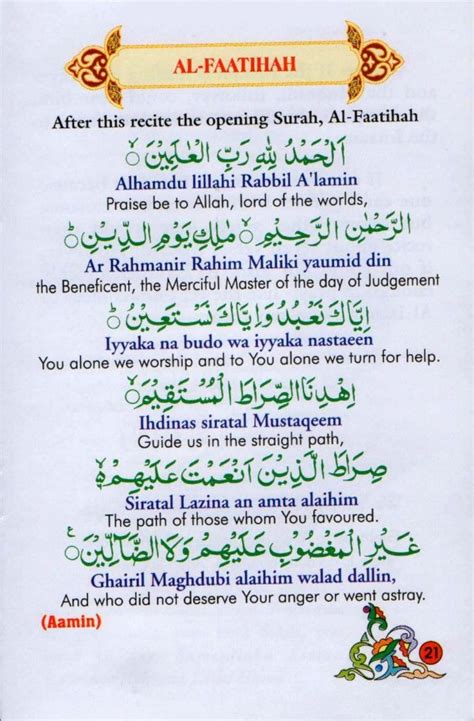 AL-FAATIHAH
After this recite the opening Surah, Al-Faatihah
اَلْحَمْدُ لِلّٰهِ رَبِّ الْعٰلَمِيْنَ ۙ
Alhamdu lillahi Rabbil A'lamin
Praise be to Allah, lord of the worlds,
الرَّحْمٰنِ الرَّحِيْمِ ۙ مٰلِكِ يَوْمِ الدِّيْنِ ؕ
Ar Rahmanir Rahim Maliki yaumid din
the Beneficent, the Merciful Master of the day of Judgement
اِيَّاكَ نَعْبُدُ وَاِيَّاكَ نَسْتَعِيْنُ ؕ
Iyyaka na budo wa iyyaka nastaeen
You alone we worship and to You alone we turn for help.
اِهْدِنَا الصِّرَاطَ الْمُسْتَقِيْمَ ۙ
Ihdinas siratal Mustaqeem
Guide us in the straight path,
صِرَاطَ الَّذِيْنَ اَنْعَمْتَ عَلَيْهِمْ ۙ
Siratal Lazina an amta alaihim
The path of those whom You favoured.
غَيْرِ الْمَغْضُوْبِ عَلَيْهِمْ وَلَا الضَّآلِّيْنَ
Ghairil Maghdubi alaihim walad dallin,
And who did not deserve Your anger or went astray.
(Aamin)
21